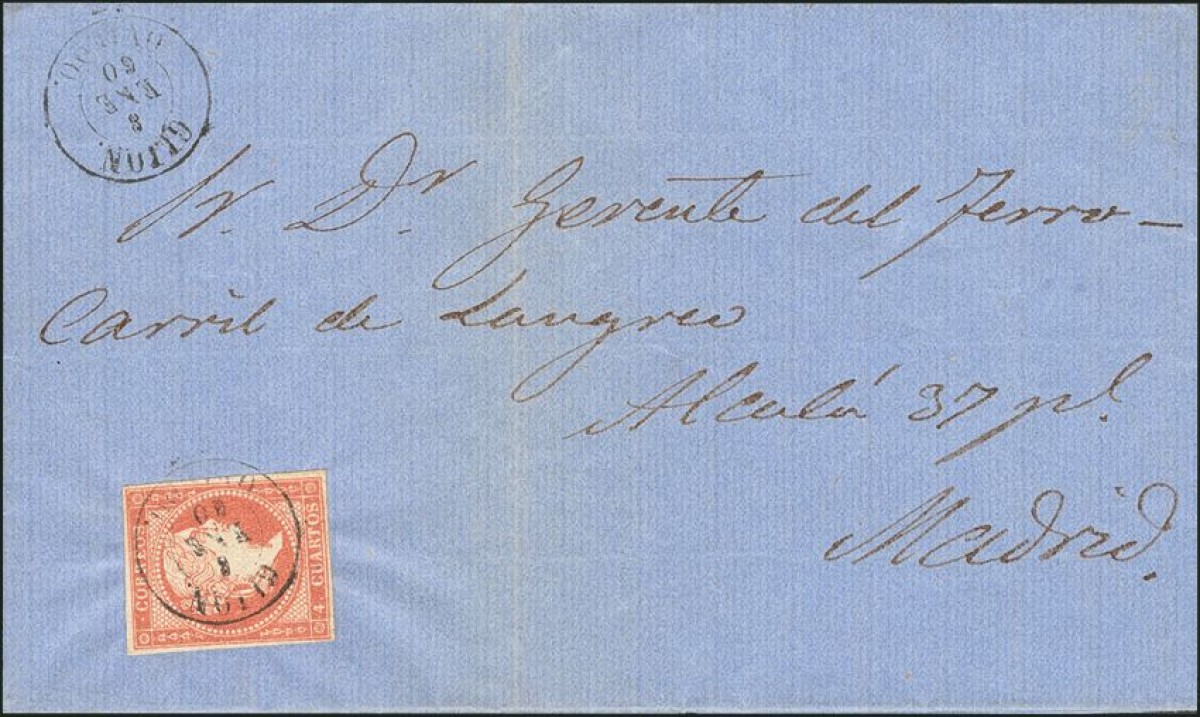 GIJON.
8
ENE
60
OVIEDO.
Sr. Dr. Gerente del Ferro-
Carril de Langreo
Alcalá 37 pl.
Madrid.
CORREOS
4. CUARTOS
GIJON
8
ENE
60